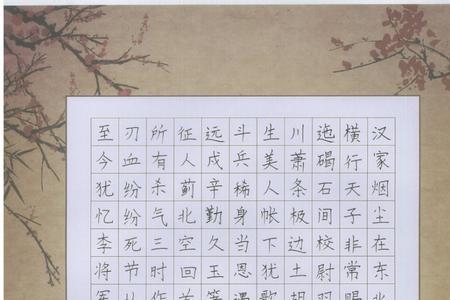 汉家烟尘在东北
横行天子非常赐
迤碣石间校尉羽
川萧条极边土胡
生美人帐下犹歌
斗兵稀身当恩遇
远戍辛勤久玉箸
征人蓟北空回首
所有杀气三时作
刃血纷纷死节从
至今犹忆李将军